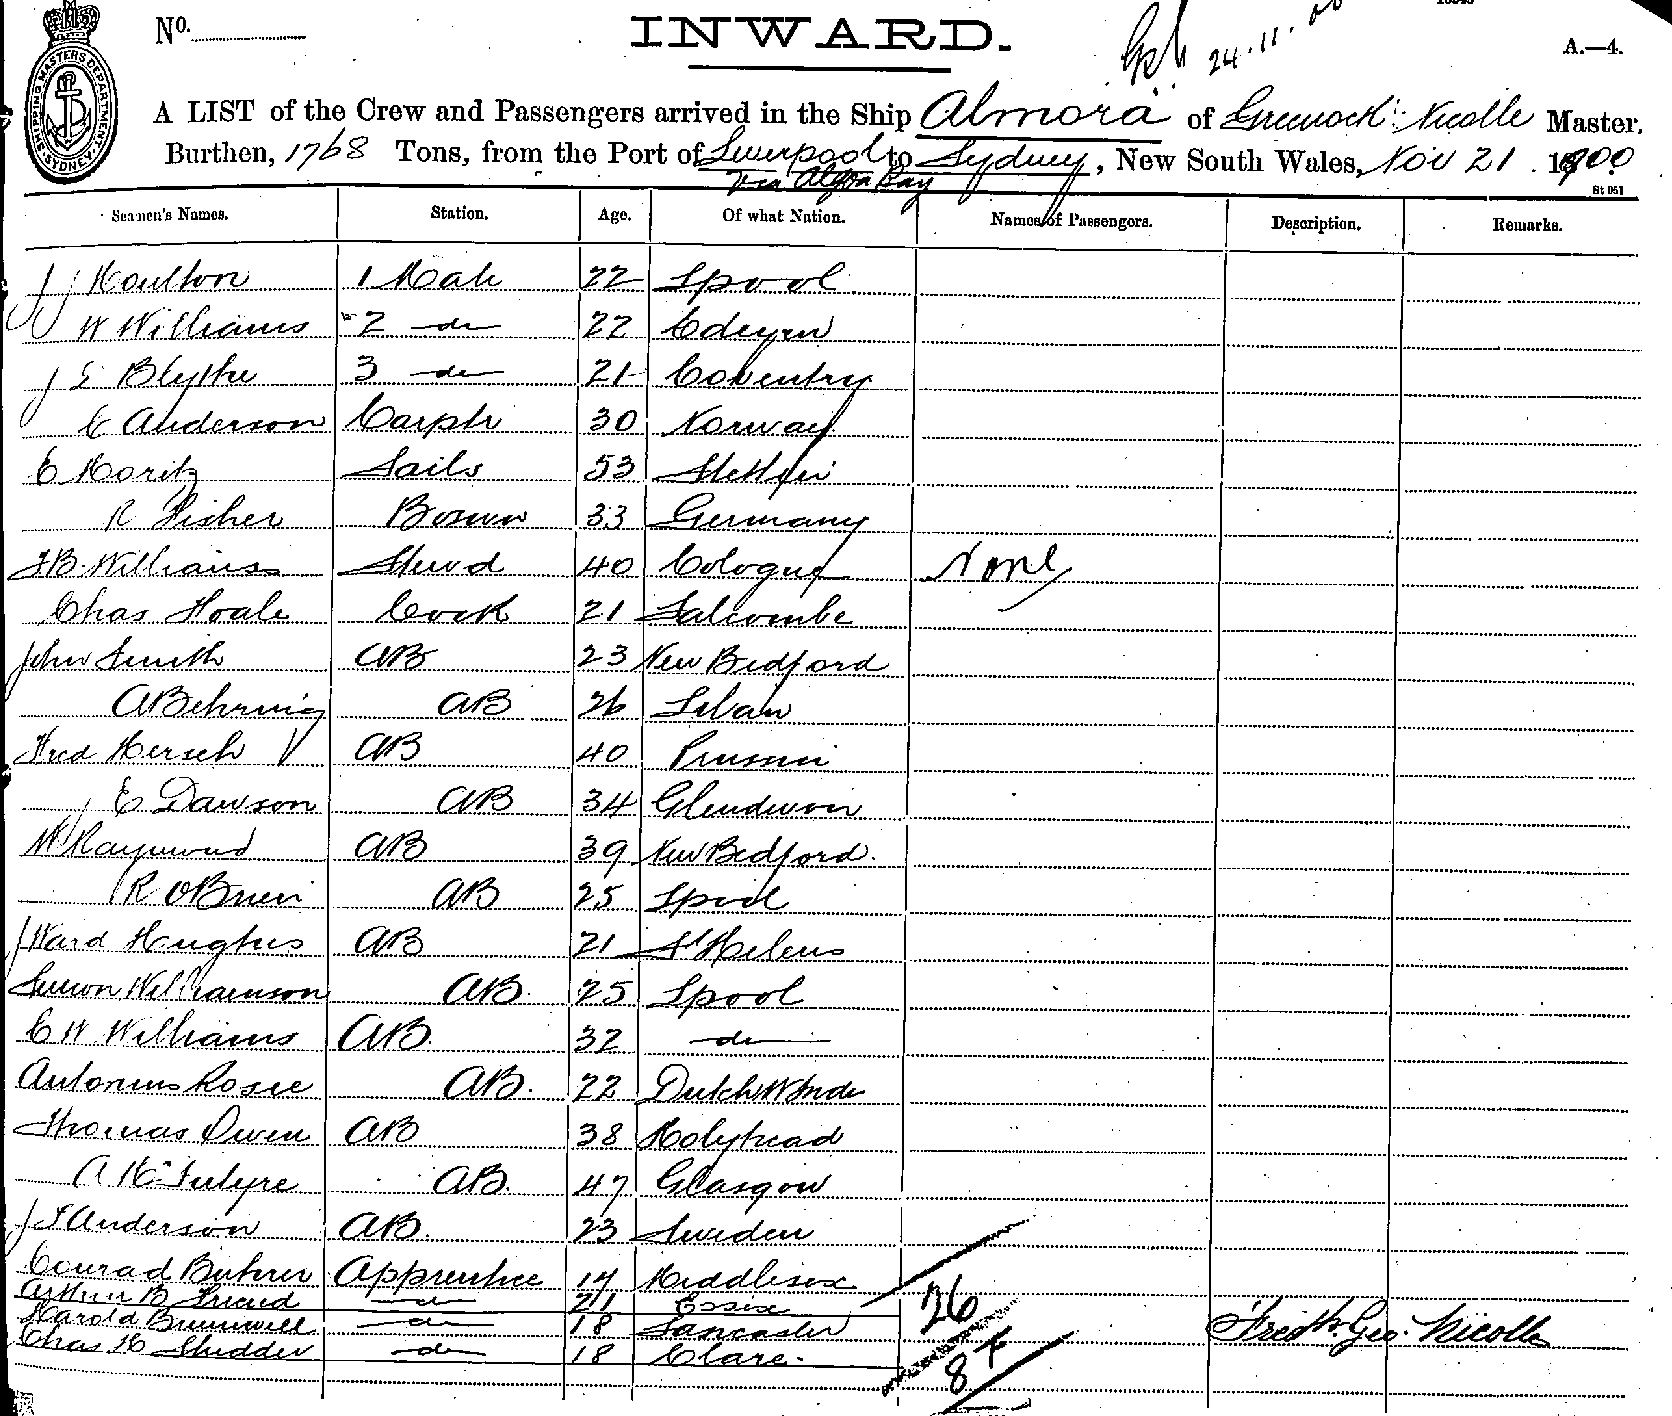 No.
INWARD.
24.11.00
A.—4.
SHIPPING MASTERS DEPARTMENT SYDNEY
A LIST of the Crew and Passengers arrived in the Ship Almora of Greenock Nicolle Master,
Burthen, 1768 Tons, from the Port of Liverpool to Sydney, New South Wales, Nov 21 1900
via Algoa Bay
St 051
Seamen's Names. Station. Age. Of what Nation. Names of Passengers. Description. Remarks.
J Moulton 1 Mate 22 Lpool
W Williams 2 do 22 Edeyrn
J E Blythe 3 do 21 Coventry
C Anderson Carptr 30 Norway
E Moritz Sails 53 Stettin
R Fisher Bosun 33 Germany
J B Williams Stewd 40 Cologne None
Chas Hoale Cook 21 Salcombe
John Smith AB 23 New Bedford
A Behring AB 26 Libau
Fred Hersch AB 40 Prussia
E Dawson AB 34 Glendevon
W Raymond AB 39 New Bedford.
R OBrien AB 25 Lpool
J Ward Hughes AB 21 St Helens
Simon Williamson AB 25 Lpool
C W Williams AB 32 do
Antonius Rosie AB. 22 Dutch W Inde
Thomas Owen AB 38 Holyhead
A McIntyre AB. 47 Glasgow
J F Anderson AB. 23 Sweden
Conrad Buhrer Apprentice 17 Middlesex
Arthur B Friend do 21 Essex 26
Harold Bumwell do 18 Lancaster Fredk. Geo. Nicolle
Chas H Studder do 18 Clare.
8